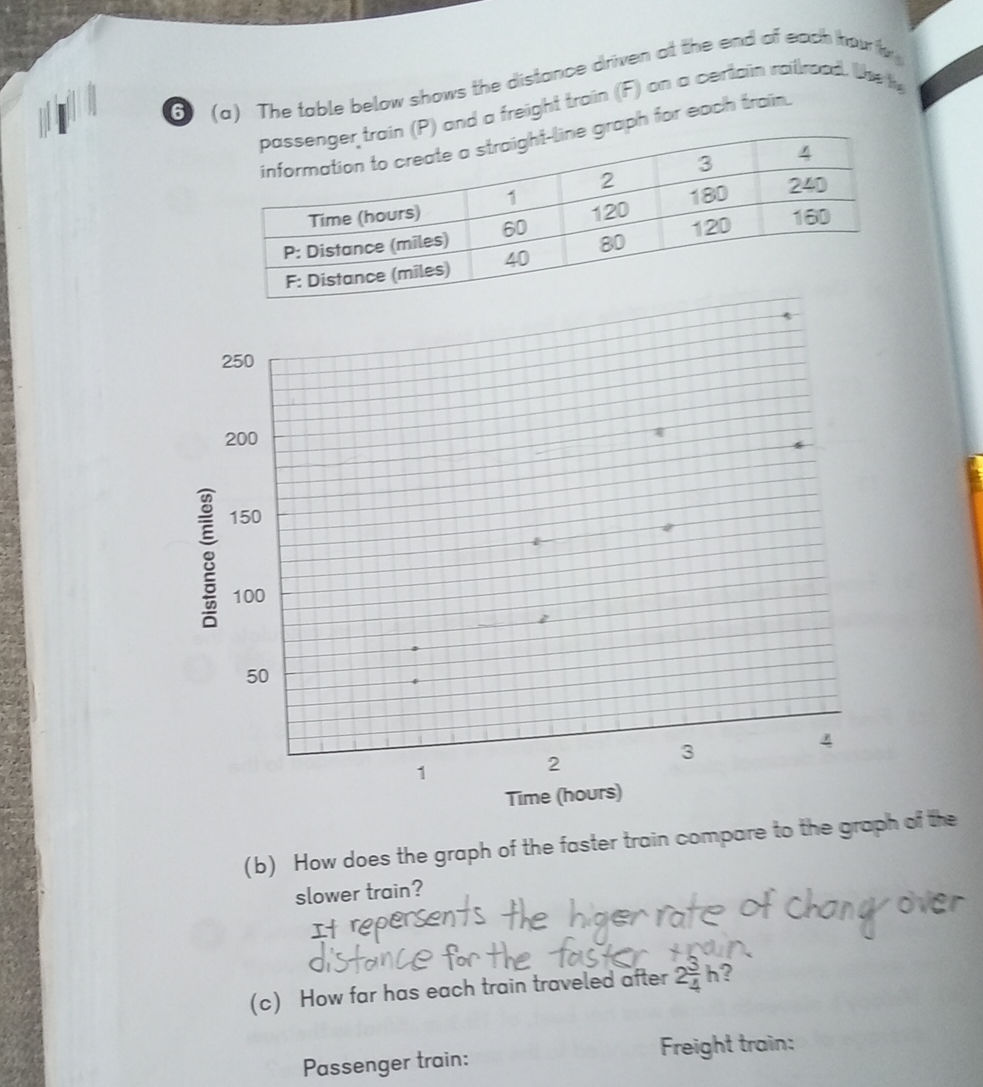 6 (a) The table below shows the distance driven at the end of each hour for
passenger train (P) and a freight train (F) on a certain railroad. Use the
information to create a straight-line graph for each train.
Time (hours) 1 2 3 4
P: Distance (miles) 60 120 180 240
F: Distance (miles) 40 80 120 160
250
200
150
100
50
Distance (miles)
1 2 3 4
Time (hours)
(b) How does the graph of the faster train compare to the graph of the
slower train?
It repersents the higer rate of chang over
distance for the faster train.
(c) How far has each train traveled after 2 3/4 h?
Passenger train: Freight train: